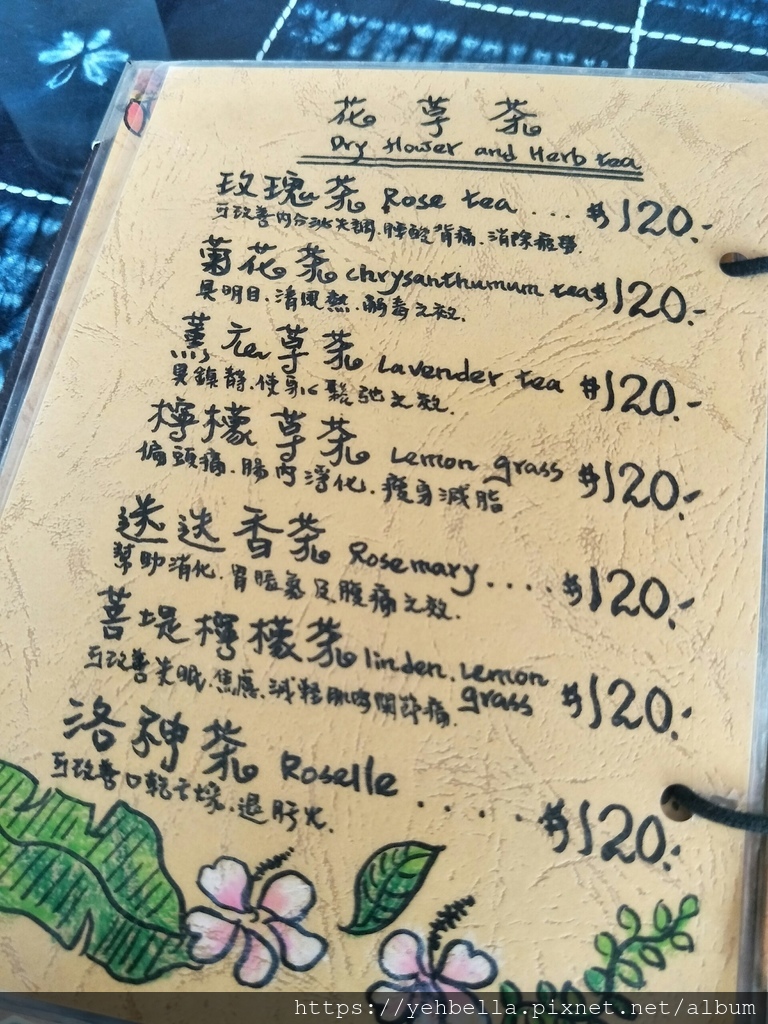 花草茶
Dry flower and Herb tea
玫瑰茶 Rose tea ... $120.-
可改善內分泌失調.腰酸背痛.消除疲勞.
菊花茶 chrysanthumum tea $120.-
具明目.清風熱.解毒之效.
薰衣草茶 Lavender tea $120.-
具鎮靜.使身心鬆弛之效.
檸檬草茶 Lemon grass $120.-
偏頭痛.腸內淨化.瘦身減脂
迷迭香茶 Rosemary.... $120.-
幫助消化.胃脹氣及腹痛之效.
菩堤檸檬茶 linden.Lemon grass $120.-
可改善失眠.焦慮.減輕肌肉關節痛.
洛神茶 Roselle ..... $120.-
可改善口乾舌燥.退肝火.
https://yehbella.pixnet.net/album